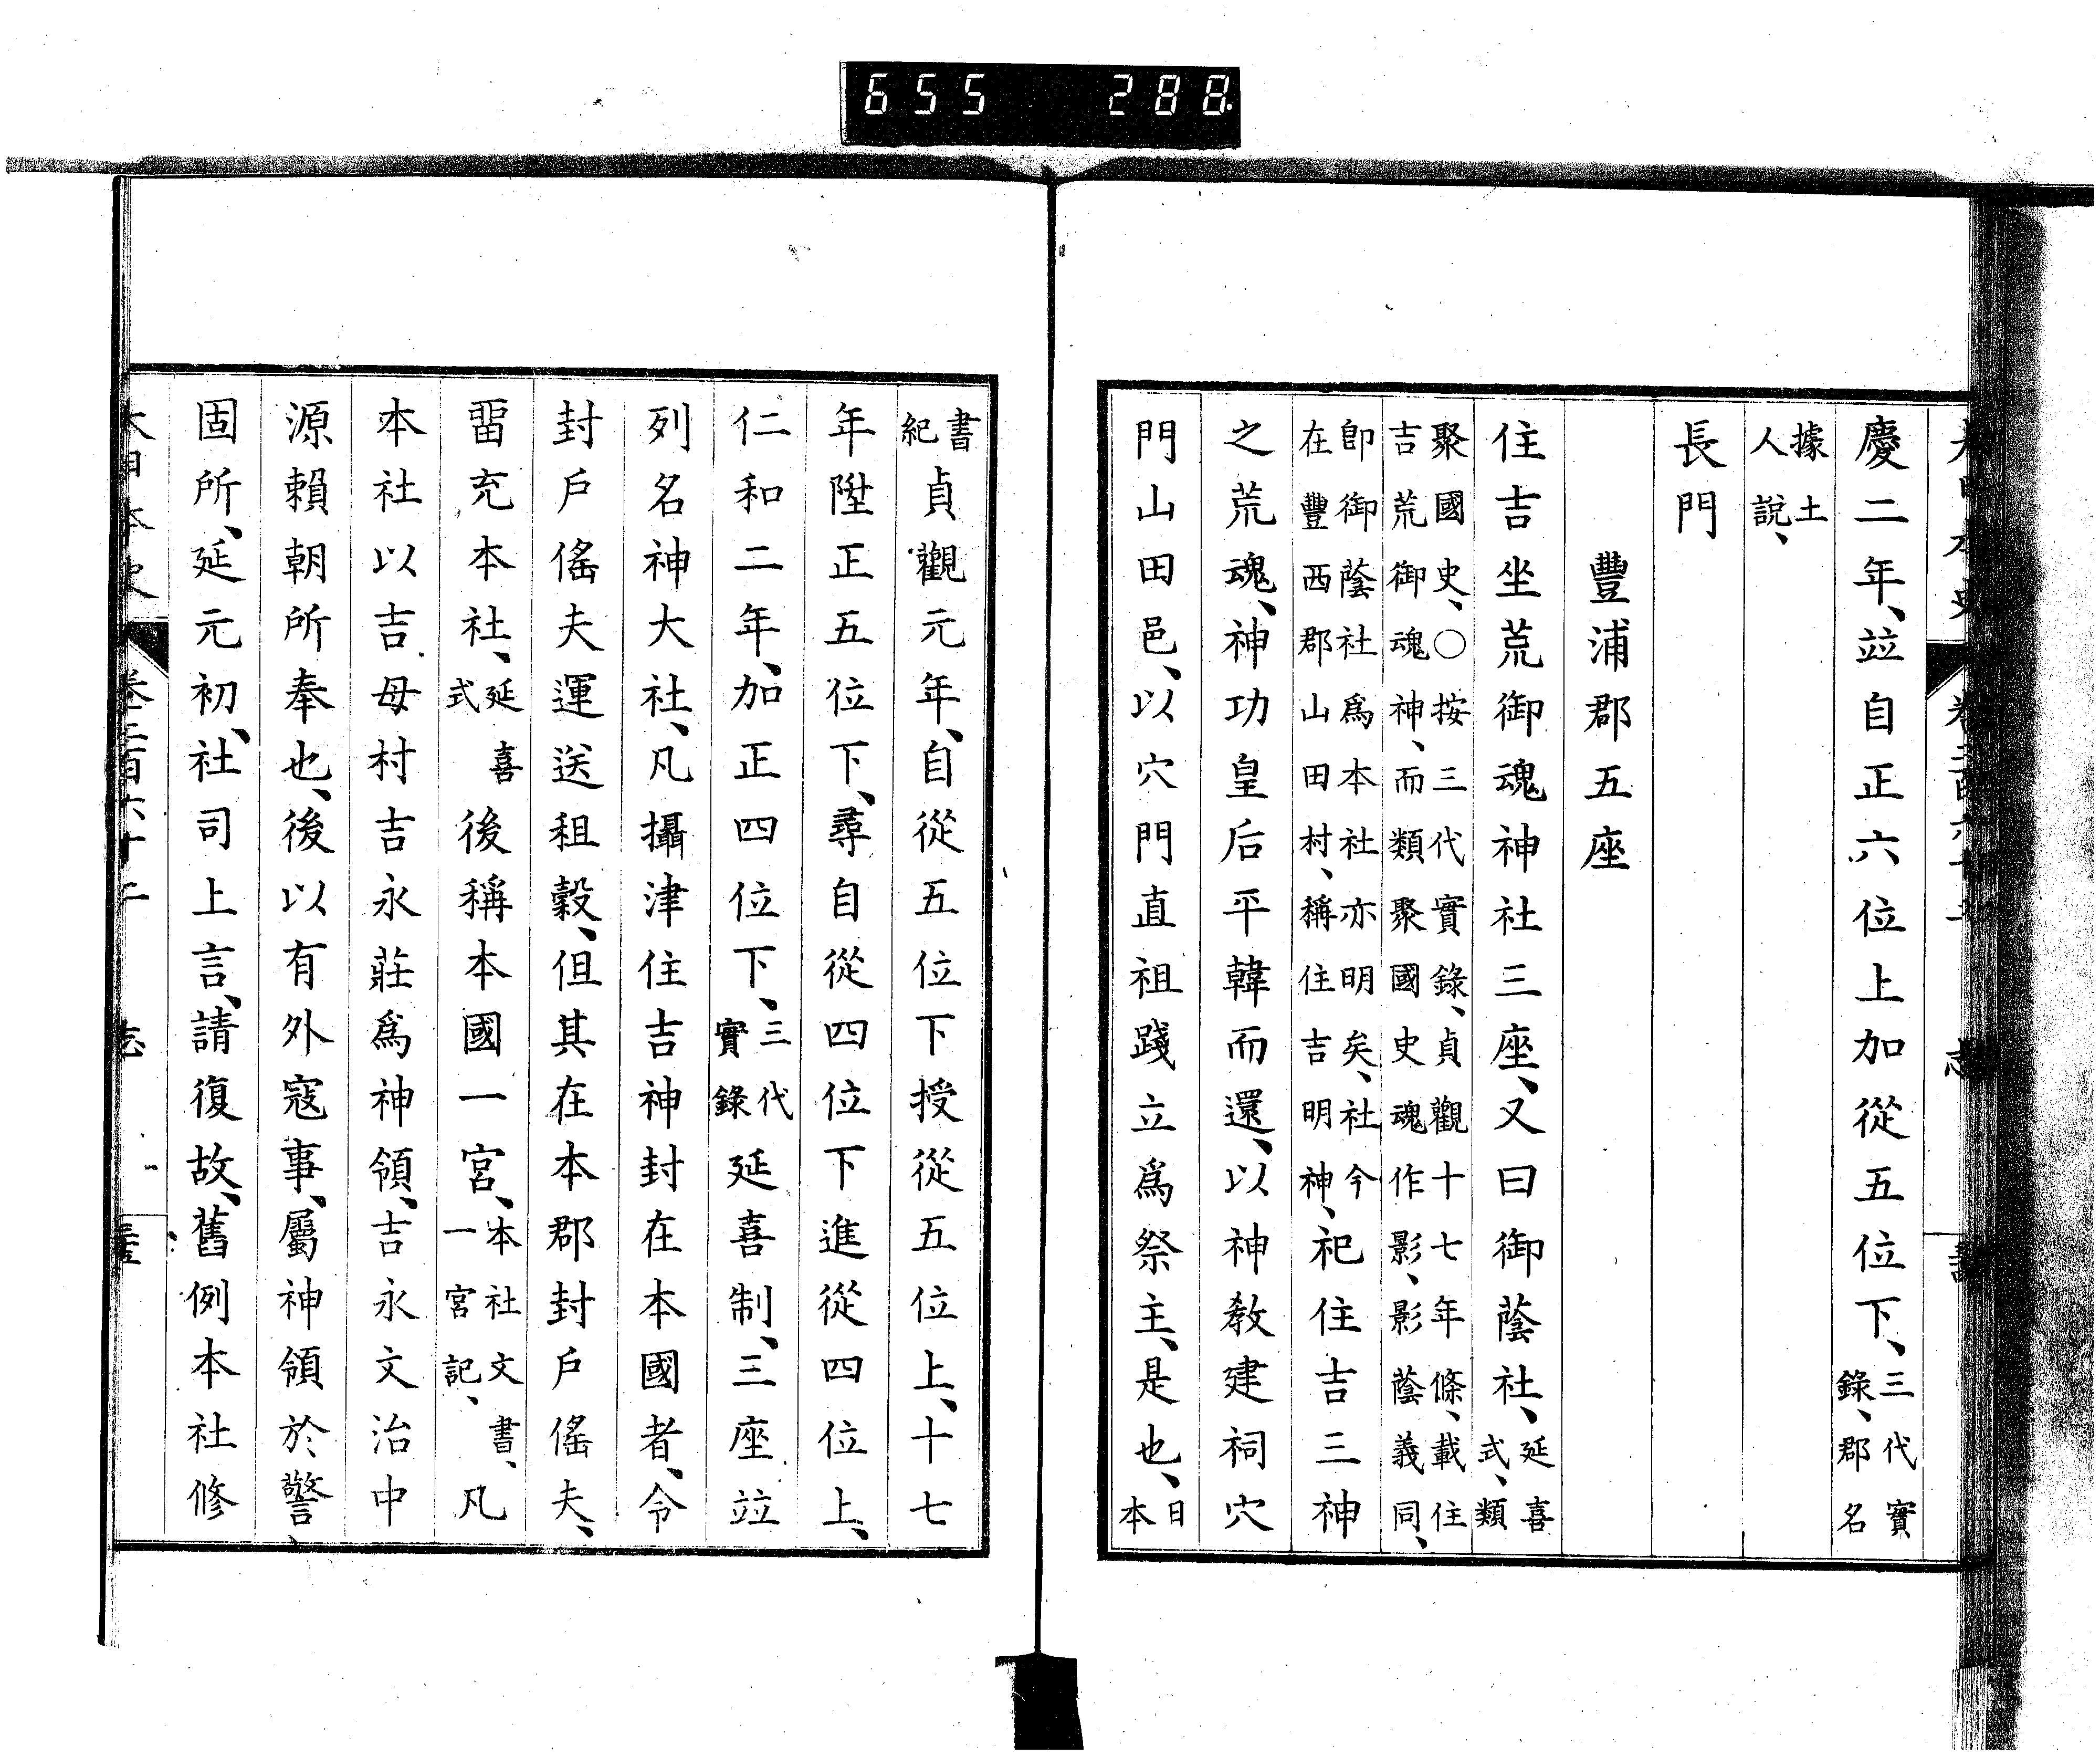 655 288
慶二年、竝自正六位上加從五位下、三代實錄、郡名
據土人說、
長門
豐浦郡五座
住吉坐荒御魂神社三座、又曰御蔭社、延喜式、類
聚國史、○按三代實錄、貞觀十七年條、載住吉荒御魂神、而類聚國史魂作影、影蔭義同、
卽御蔭社爲本社亦明矣、社今在豐西郡山田村、稱住吉明神、祀住吉三神
之荒魂、神功皇后平韓而還、以神敎建祠穴
門山田邑、以穴門直祖踐立爲祭主、是也、日本
書紀貞觀元年、自從五位下授從五位上、十七
年陞正五位下、尋自從四位下進從四位上、
仁和二年、加正四位下、三代實錄延喜制、三座竝
列名神大社、凡攝津住吉神封在本國者、令
封戶傜夫運送租穀、但其在本郡封戶傜夫、
畱充本社、延喜式後稱本國一宮、本社文書、一宮記、凡
本社以吉母村吉永莊爲神領、吉永文治中
源賴朝所奉也、後以有外寇事、屬神領於警
固所、延元初、社司上言、請復故、舊例本社修
大日本史 卷二百六十二 志